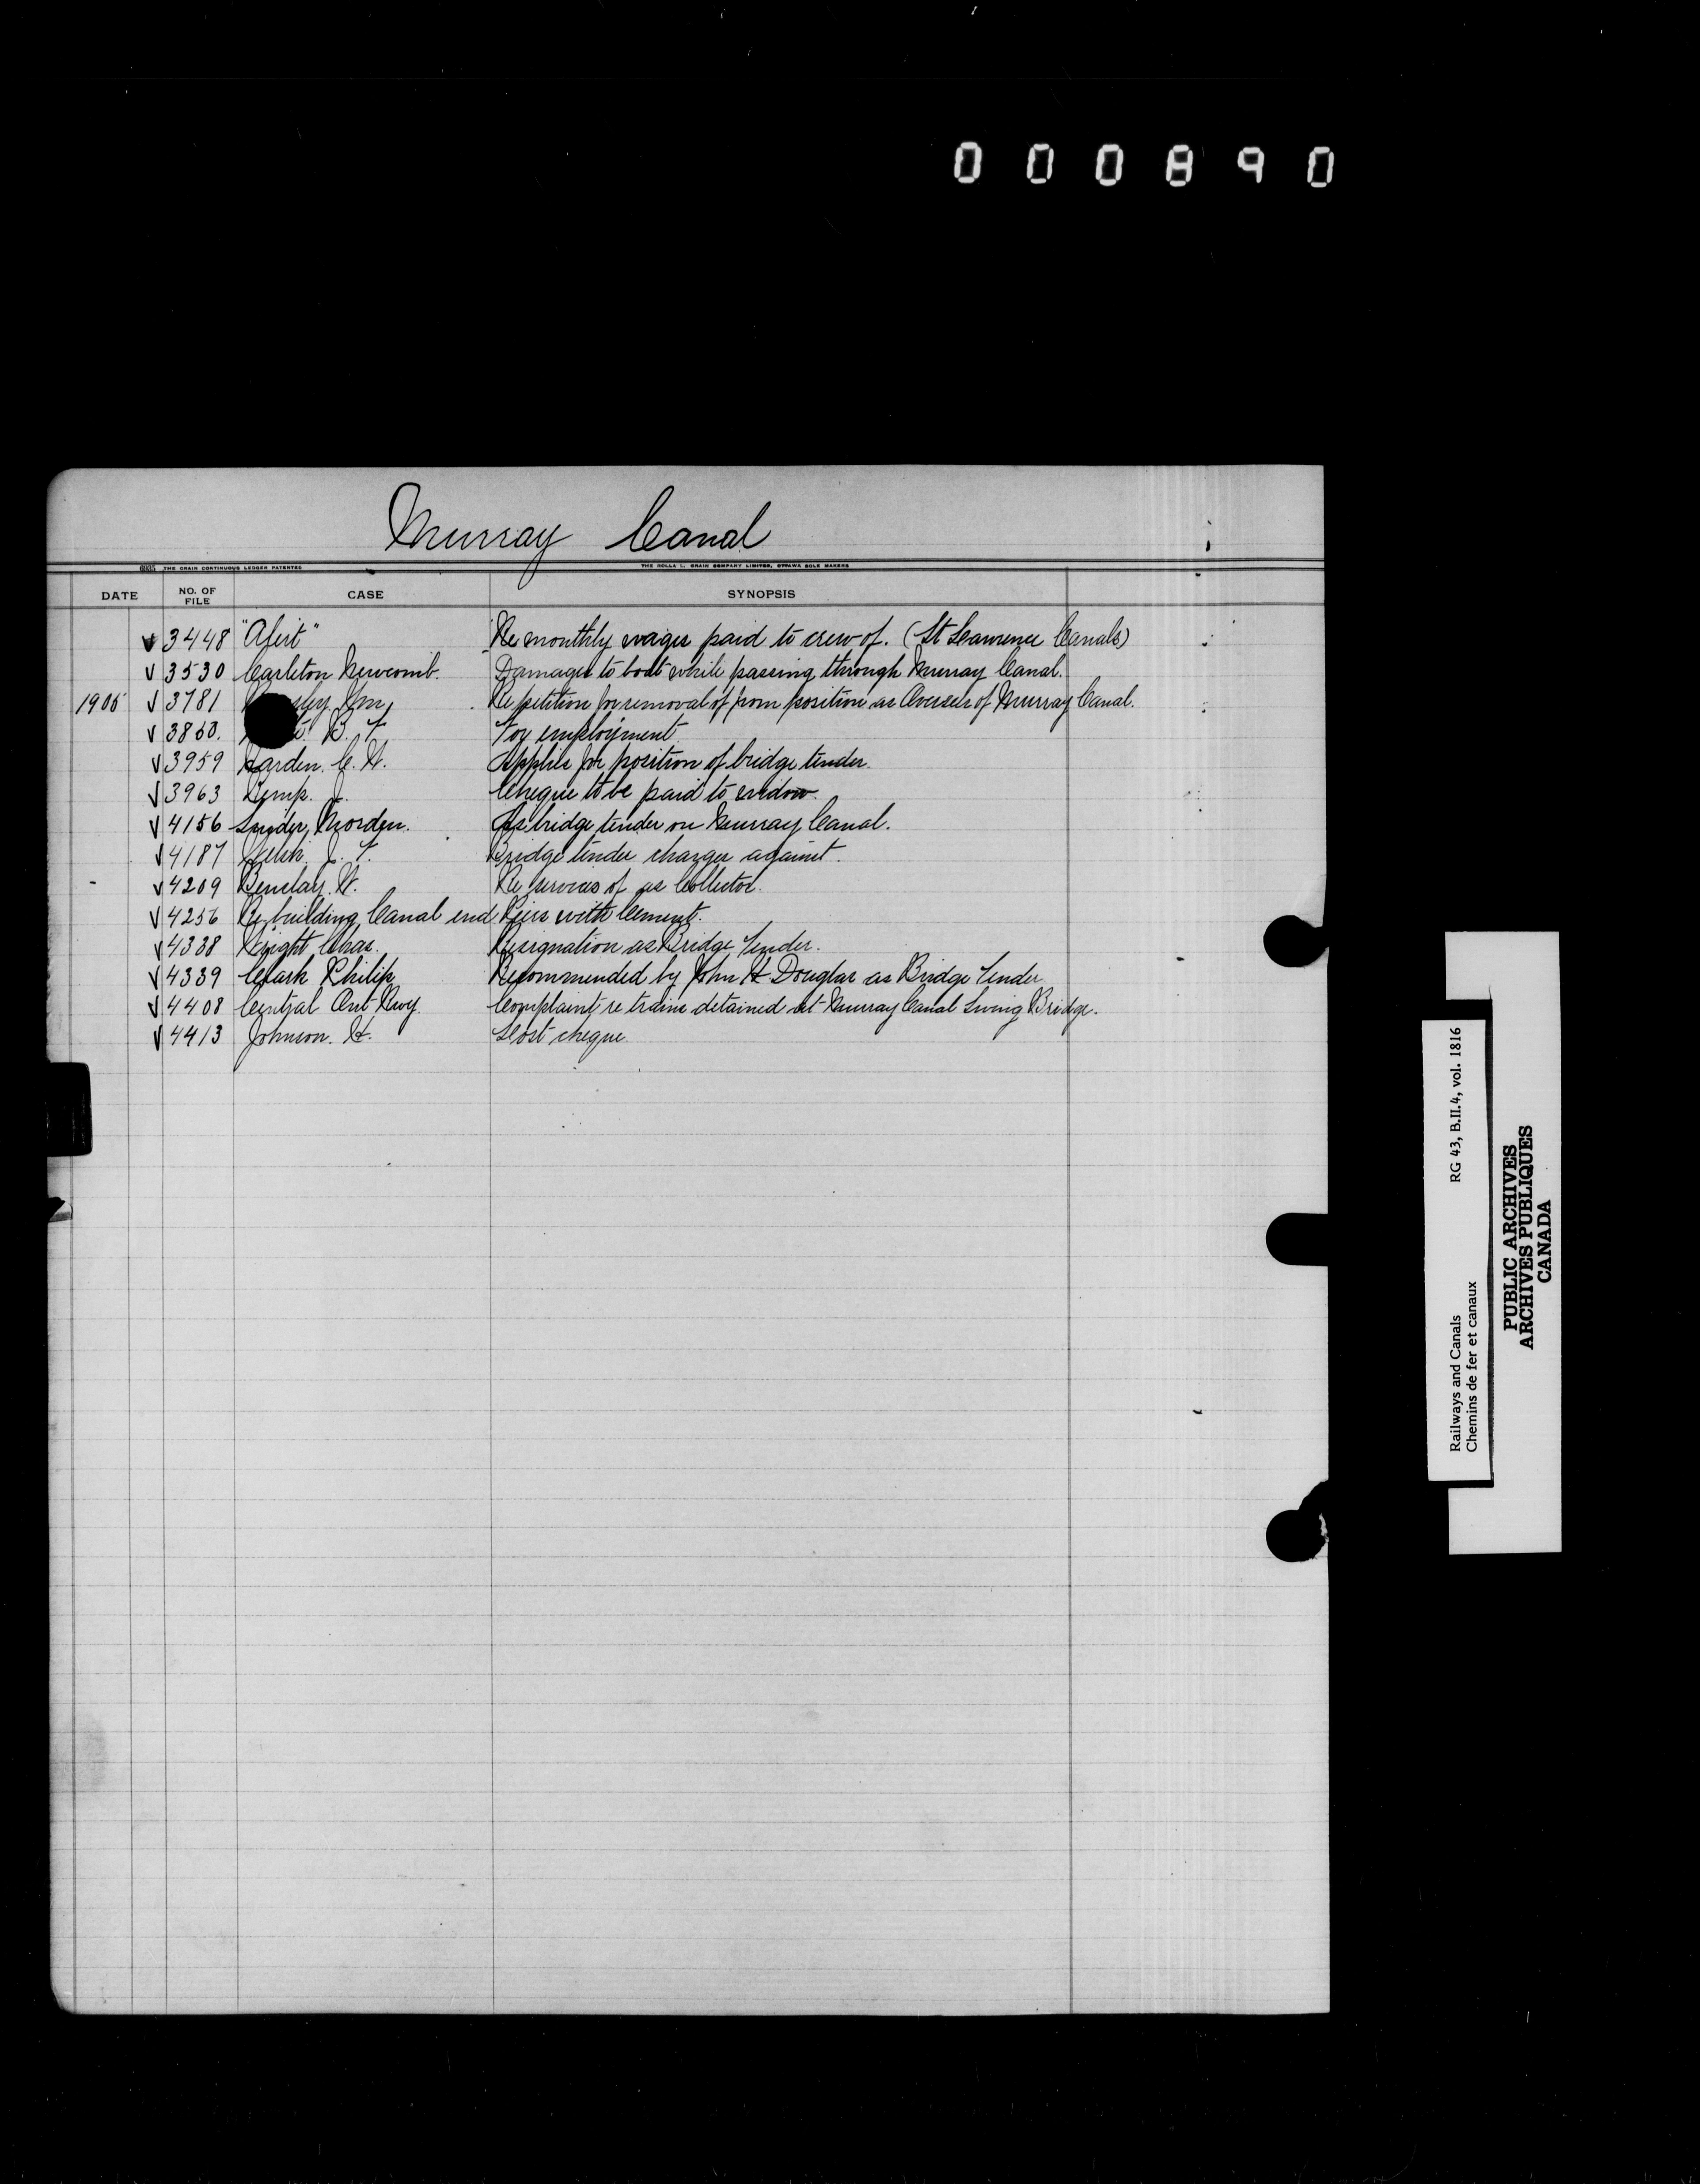 000890
Murray Canal
THE CRAIN CONTINUOUS LEDGER PATENTED THE ROLLA L. CRAIN COMPANY LIMITED, OTTAWA SOLE MAKERS
DATE NO. OF FILE CASE SYNOPSIS
√ 3448 "Alert" Re monthly wages paid to crew of. (St Lawrence Canals)
√ 3530 Carleton Newcomb. Damages to boat while passing through Murray Canal.
1905 √ 3781 Wm Re petition for removal of from position as Overseer of Murray Canal.
√ 3850. B. F. For employment
√ 3959 Harden. C. W. Applies for position of bridge tender.
√ 3963 Kemp. J. Cheque to be paid to widow.
√ 4156 Snyder, Morden. As bridge tender on Murray Canal.
√ 4187 J. F. Bridge tender charges against.
√ 4209 W. Re services of as Collector.
√ 4256 Re, building Canal end Piers with Cement.
√ 4338 Wright Chas. Resignation as Bridge Tender.
√ 4339 Clark Philip Recommended by John H Douglas as Bridge Tender
√ 4408 Central Ont Rwy. Complaint re trains detained at Murray Canal Swing Bridge.
√ 4413 Johnson. H. Lost cheque
Railways and Canals RG 43, B.II.4, vol. 1816
Chemins de fer et canaux
PUBLIC ARCHIVES
ARCHIVES PUBLIQUES
CANADA